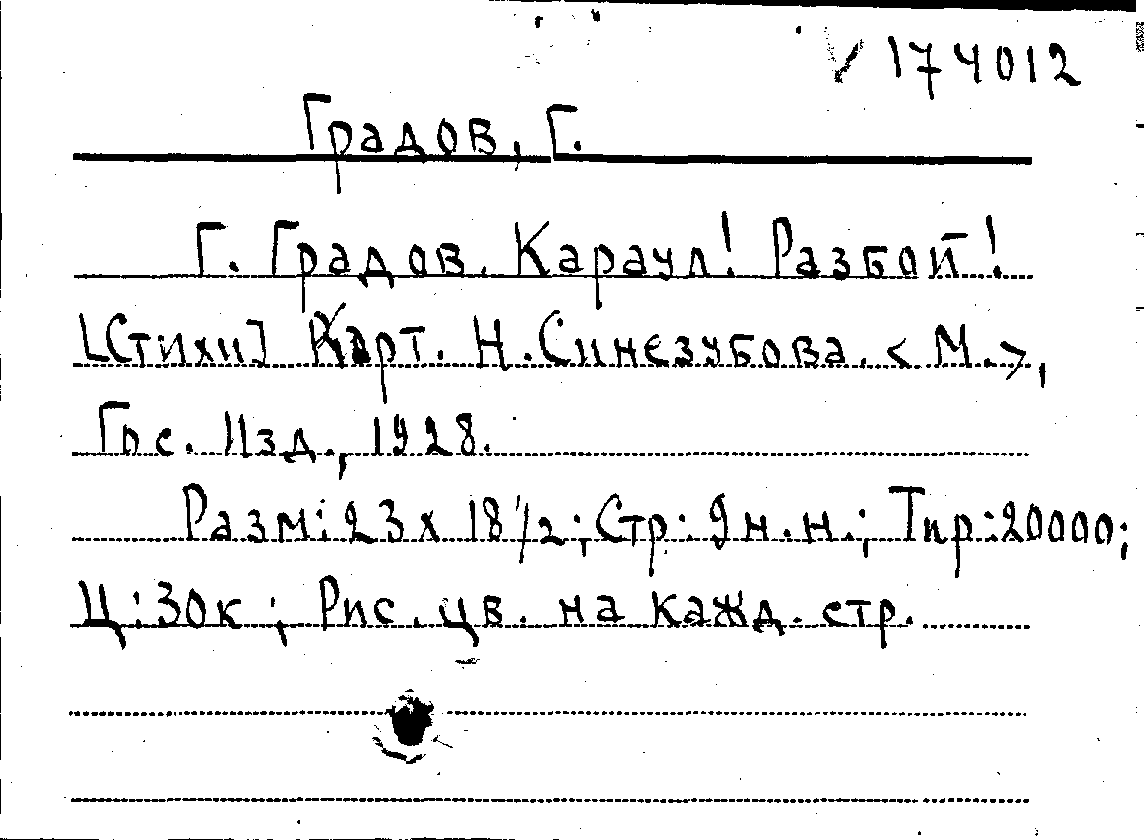 √ 174012
Градов, Г.
Г. Градов. Караул! Разбой!
[Стихи] Карт. Н. Синезубова. <М.>,
Гос. Изд., 1928.
Разм: 23 х 18 1/2; Стр: 9 н.н.; Тир: 20000;
Ц: 30к; Рис. цв. на кажд. стр.